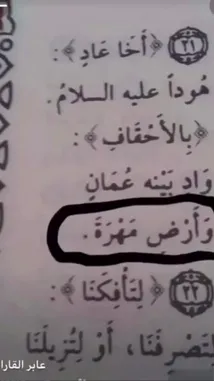 (٢١) ﴿أَخَا عَادٍ﴾:
هُوداً عليه السلامُ.
﴿بِالأَحْقَافِ﴾:
وَادٍ بَيْنه عُمَانِ
وَأَرْضِ مَهْرَةَ.
(٢٢) ﴿لِتَأْفِكَنَا﴾:
لِتَصْرِفَنَا، أَوْ لِتُزِيلَنَا
عابر القارا